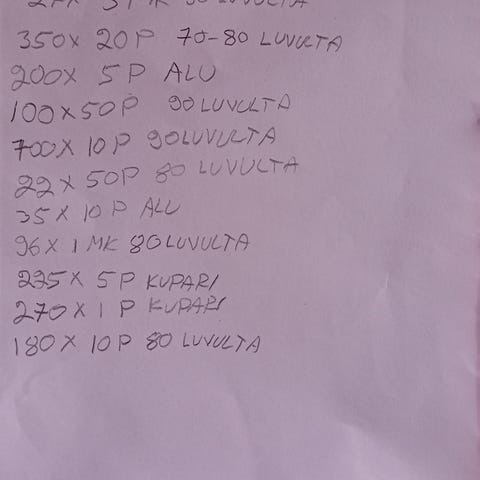 5 MK 90 LUVULTA
350X 20 P 70-80 LUVULTA
200X 5 P ALU
100X50P 90 LUVULTA
700X 10 P 90LUVULTA
22X 50P 80 LUVULTA
35X 10 P ALU
96X 1 MK 80LUVULTA
225X 5 P KUPARI
270X 1 P KUPARI
180X 10P 80 LUVULTA